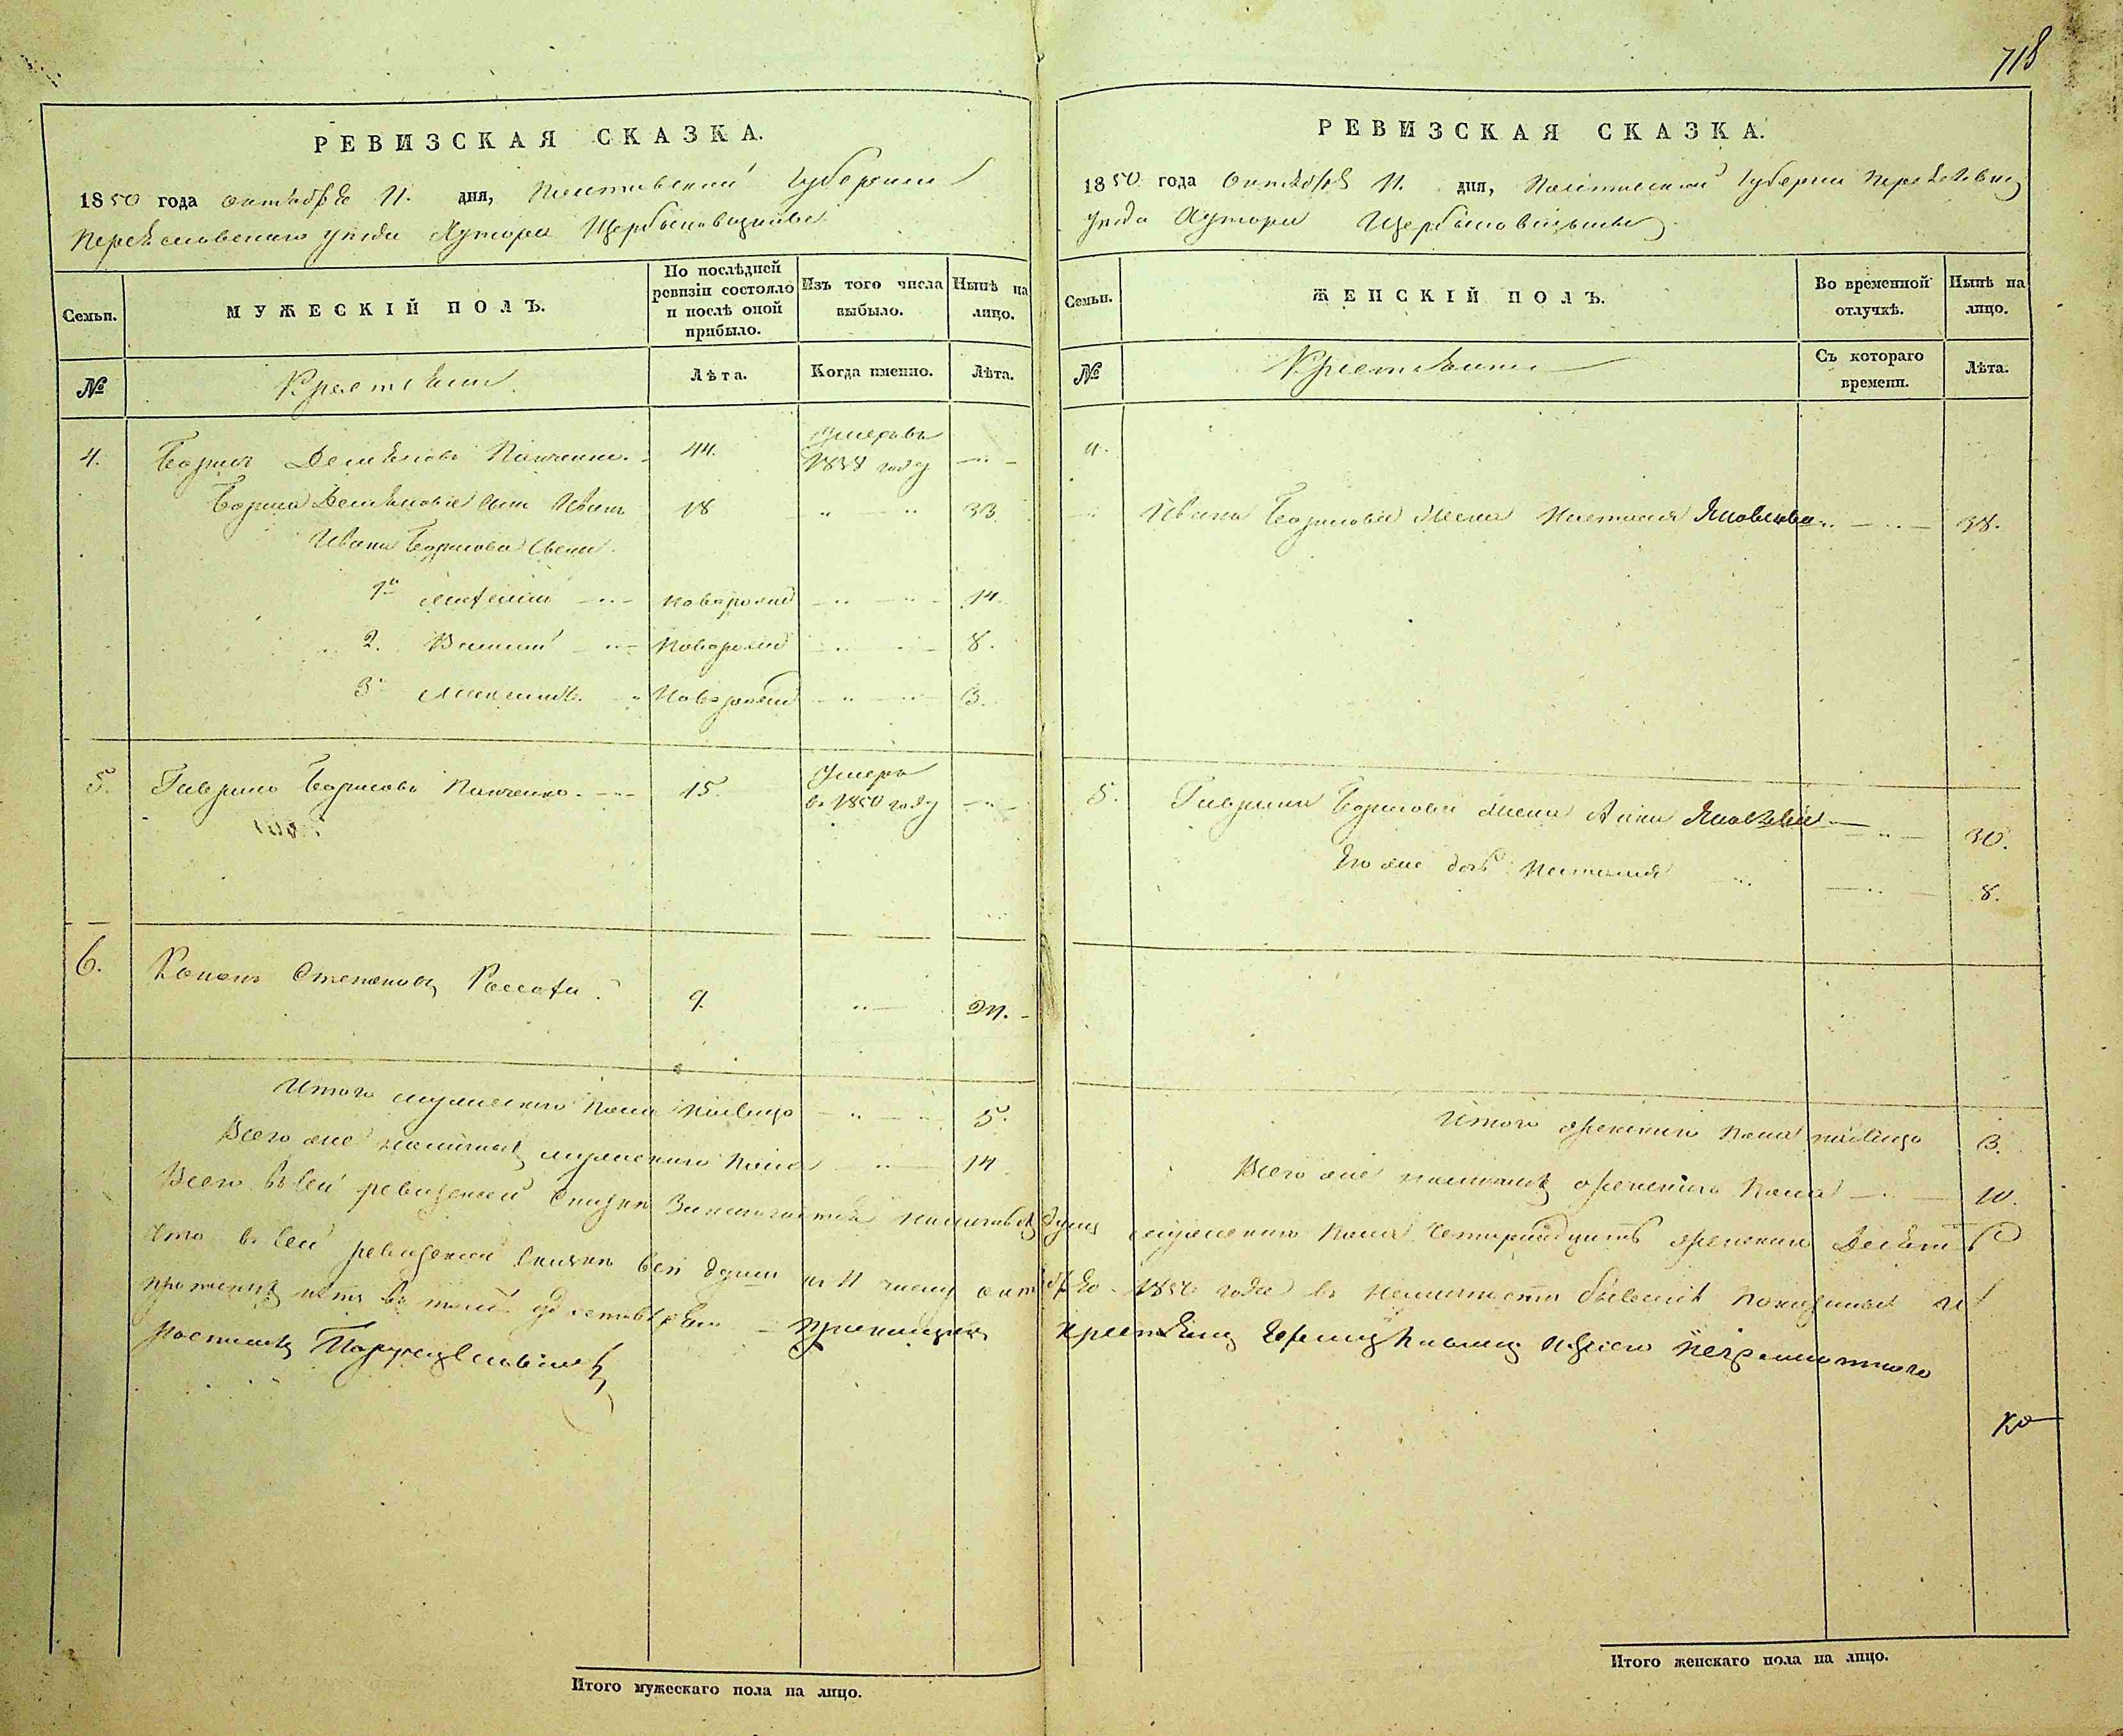 718
РЕВИЗСКАЯ СКАЗКА.
1850 года октября 11. дня, Полтавской Губернии
Переяславского уезда Хутора Щербиновщины
Семьи.
МУЖЕСКІЙ ПОЛЪ.
По послѣдней ревизіи состояло и послѣ оной прибыло.
Изъ того числа выбыло.
Нынѣ на лицо.
№
Крестьяне
Лѣта.
Когда именно.
Лѣта.
4. Борисъ Демьяновъ Панченко. 44. умеръ въ 1838 году
Бориса Демьянова сынъ Иванъ 18 33
Ивана Борисова сыновья
1й новорожд 14.
2. Василий новорожд 8.
3й Максимъ. новорожд 3.
5. Гаврило Борисовъ Панченко. 15. Умеръ в 1850 году
6. Кононъ Степановъ 9. 24.
Итого мужеского пола налицо 5.
Всего же наличныхъ мужеского пола 14
РЕВИЗСКАЯ СКАЗКА.
1850 года Октября 11. дня, Полтавской Губернии Переяславского
уезда Хутора Щербиновщины
Семьи.
ЖЕНСКІЙ ПОЛЪ.
Во временной отлучкѣ.
Нынѣ на лицо.
№
Крестьяне
Съ котораго времени.
Лѣта.
4.
Ивана Борисова жена Настасия Яковлева 38.
5. Гаврила Борисова жена Анна Яковлева 30.
Его же дочь Наталия 8.
Итого женского пола налицо 3.
Всего же наличныхъ женского пола 10.
Всего в сей ревизской сказке заключается наличныхъ душъ мужеского пола четырнадцать женского десять
что в сей ревизской сказке все души по 11 число октября 1850 года в наличности бывшие показаны и
прописныхъ нетъ в томъ крестьянинъ неграмотного
Итого мужескаго пола на лицо.
Итого женскаго пола на лицо.